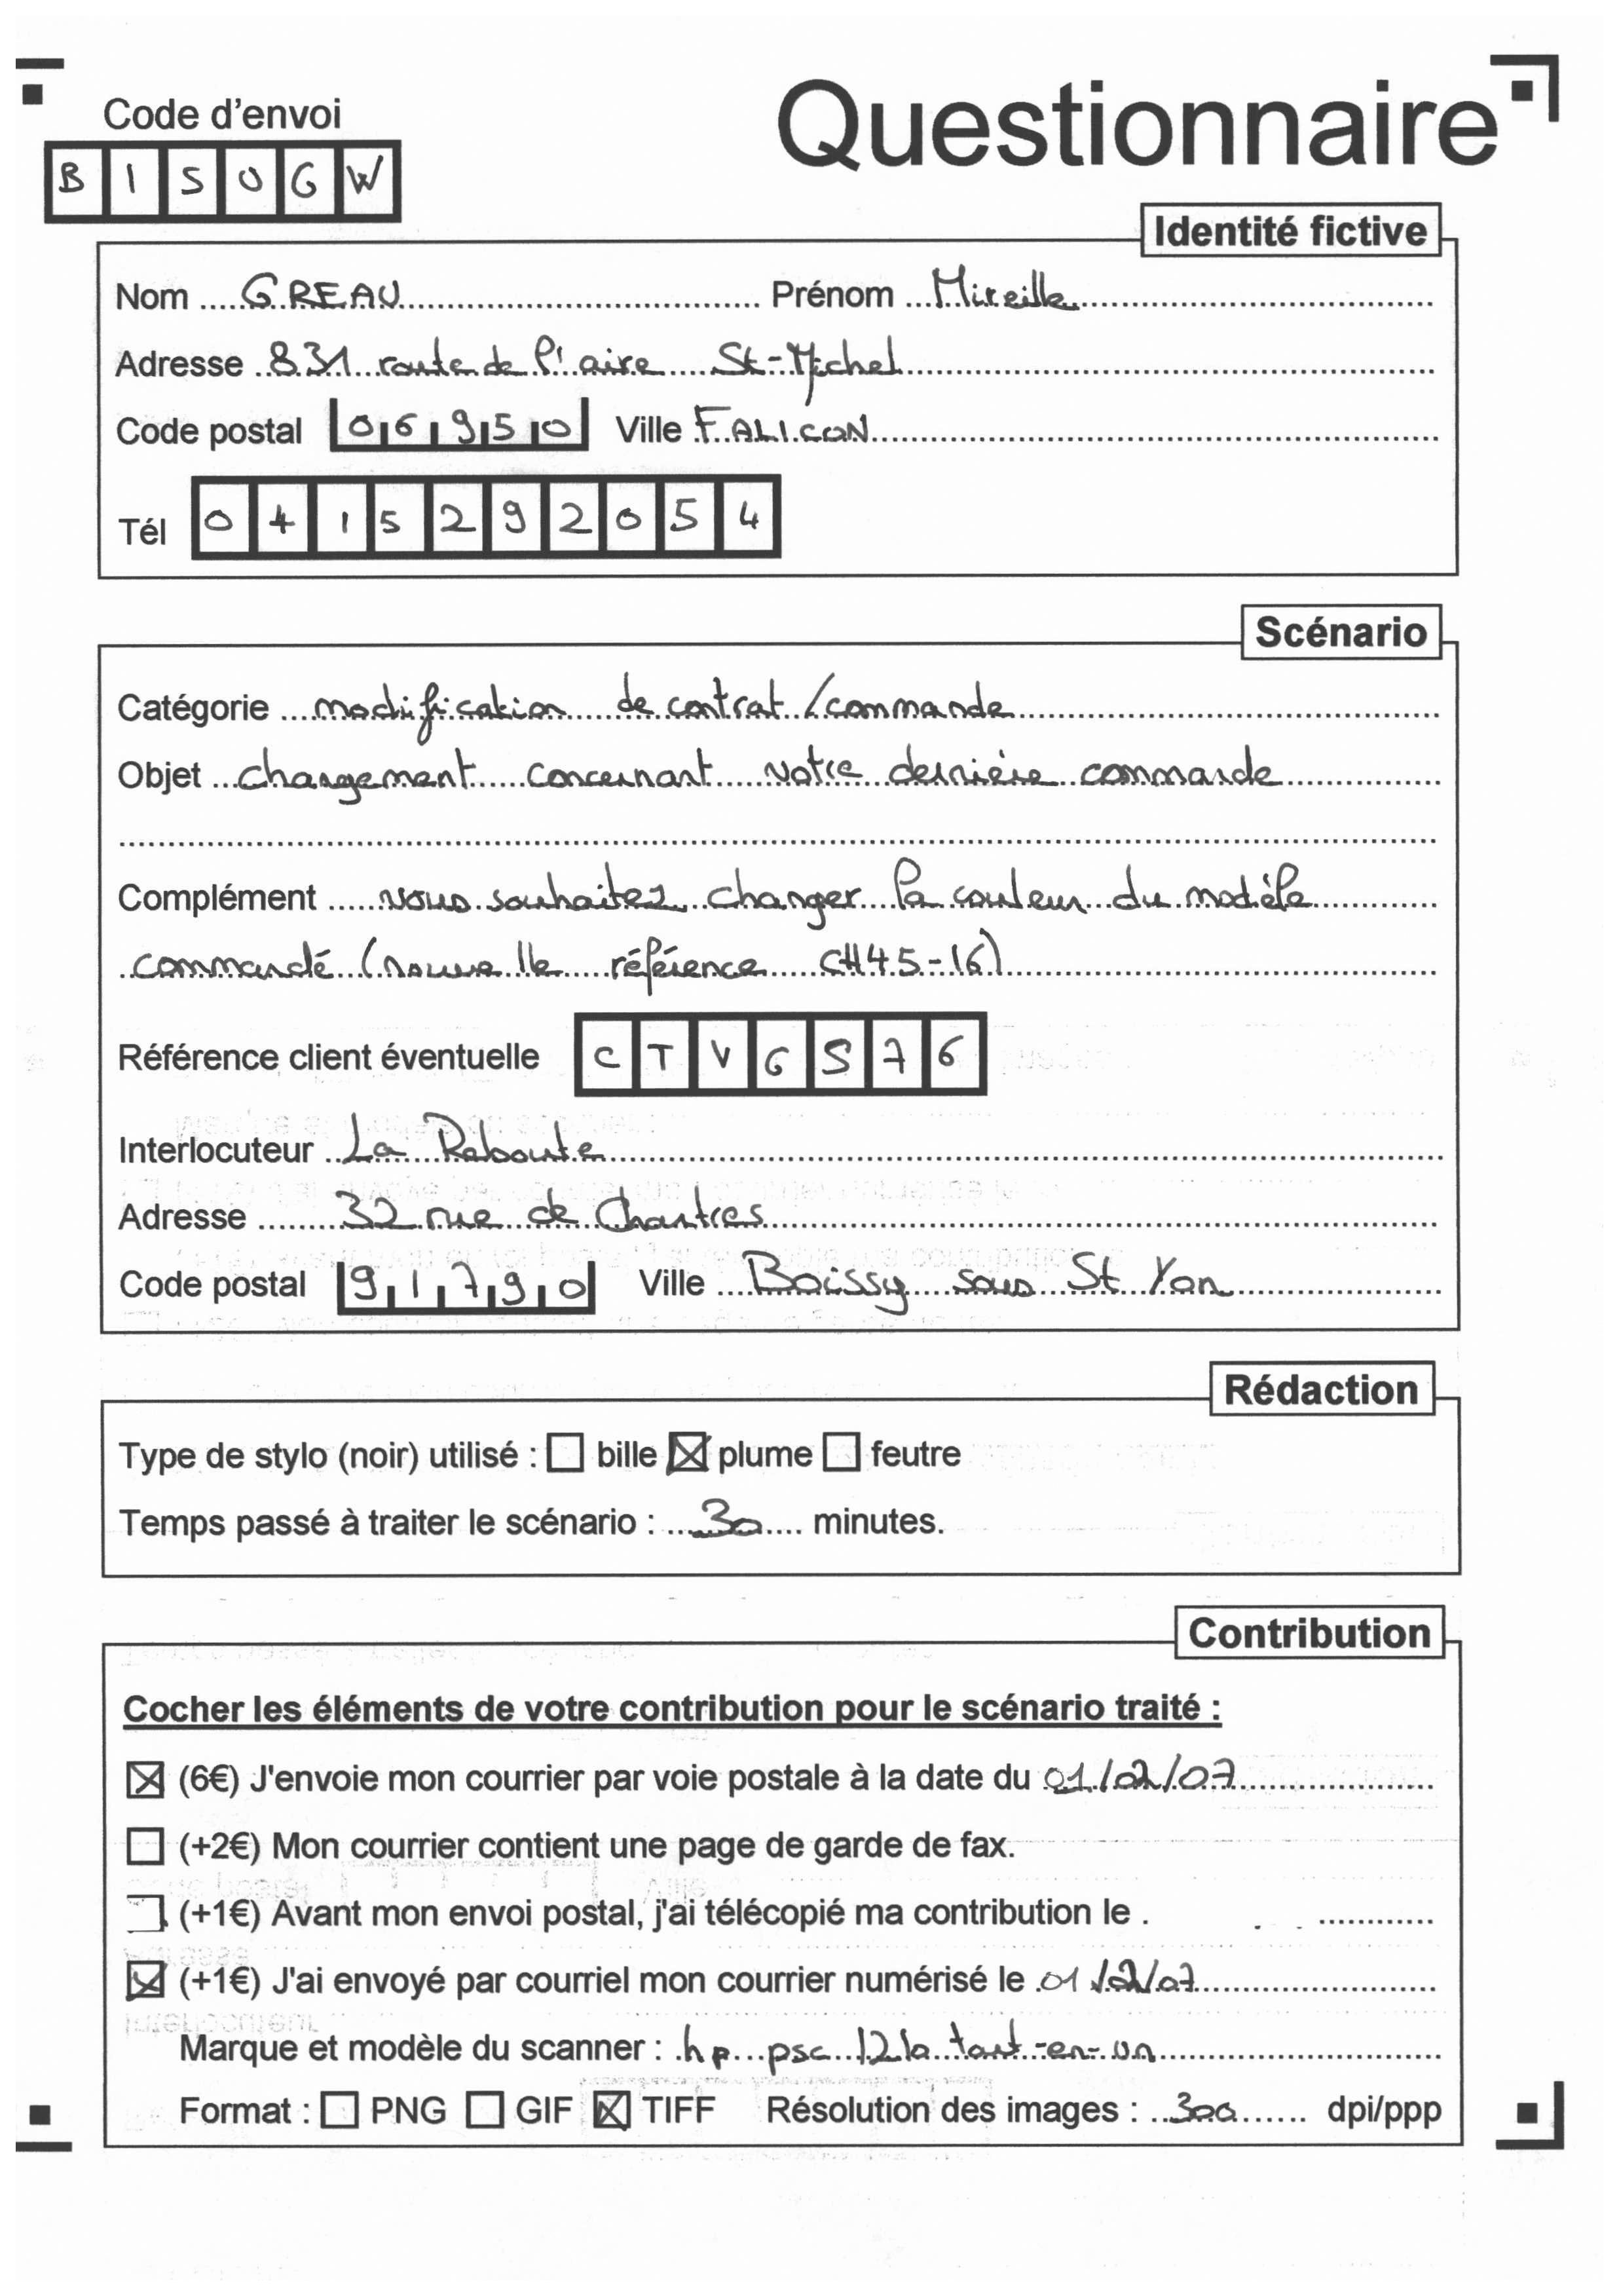 Questionnaire
Code d'envoi
B I S O G W
Identité fictive
Nom GREAU Prénom Mireille
Adresse 831 route de l'aire St-Michel
Code postal 06950 Ville FALICON
Tél 0415292054
Scénario
Catégorie modification de contrat/commande
Objet changement concernant votre dernière commande
Complément vous souhaitez changer la couleur du modèle
commandé (nouvelle référence CH45-16)
Référence client éventuelle CTVGS76
Interlocuteur La Raboute
Adresse 32 rue de Chartres
Code postal 91790 Ville Boissy sous St Yon
Rédaction
Type de stylo (noir) utilisé : ☐ bille ☒ plume ☐ feutre
Temps passé à traiter le scénario : 30 minutes.
Contribution
Cocher les éléments de votre contribution pour le scénario traité :
☒ (6€) J'envoie mon courrier par voie postale à la date du 01/02/07
☐ (+2€) Mon courrier contient une page de garde de fax.
☐ (+1€) Avant mon envoi postal, j'ai télécopié ma contribution le
☒ (+1€) J'ai envoyé par courriel mon courrier numérisé le 01/02/07
Marque et modèle du scanner : hp psc 1210 tout-en-un
Format : ☐ PNG ☐ GIF ☒ TIFF Résolution des images : 300 dpi/ppp